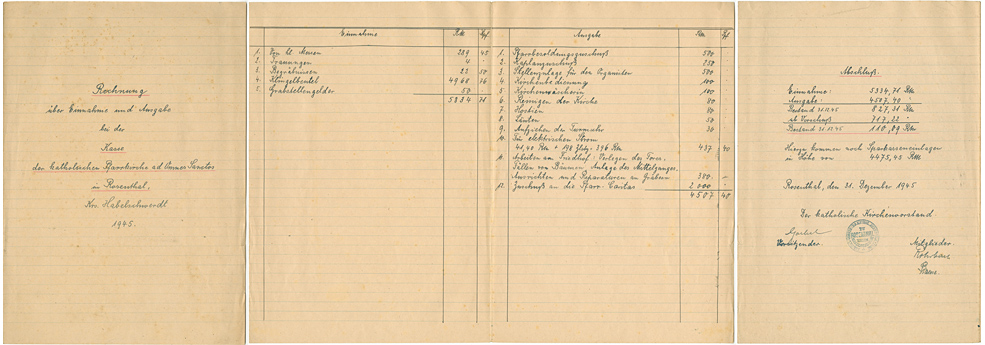 Rechnung
über Einnahme und Ausgabe
bei der
Kasse
der Catholischen Pfarrkirche ad Omnes Sanctos
in Rosenthal,
Krs. Habelschwerdt
1945.
Einnahme Rmk Pf.
1. Von hl. Messen 289 45
2. Trauungen 4 -
3. Begräbnissen 22 50
4. Klingelbeutel 4968 76
5. Grabstellengelder 50
5334 71
Ausgabe Rm Pf.
1. Pfarrbesoldungszuschuß 500
2. Kaplanzuschuß 250
3. Stellenzulage für den Organisten 500
4. Kirchenbedienung 100
5. Kirchenwäscherin 100
6. Reinigen der Kirche 80
7. Hostien 80
8. Läuten 50
9. Aufziehen der Turmuhr 30
10. Für elektrischen Strom
41,40 Rm + 198 Zloty = 396 Rm 437 40
11. Arbeiten am Friedhof: Verlegen des Tores.
Fällen von Bäumen, Anlage des Mittelganges.
Ausrichten und Reparaturen an Gräbern 380 -
12. Zuschuß an die Pfarr-Caritas 2 000
4507 40
Abschluß.
Einnahme: 5334,71 Rm
Ausgabe: 4507,40
Bestand 31.12.45 827,31 Rm
ab Vorschuß 717,22
Bestand 31.12.45 110,09 Rm
Hierzu kommen noch Sparkasseneinlagen
in Höhe von 4475,43 RM.
Rosenthal, den 31. Dezember 1945
Der Catholische Kirchenvorstand.
Vorsitzender. Mitglieder.